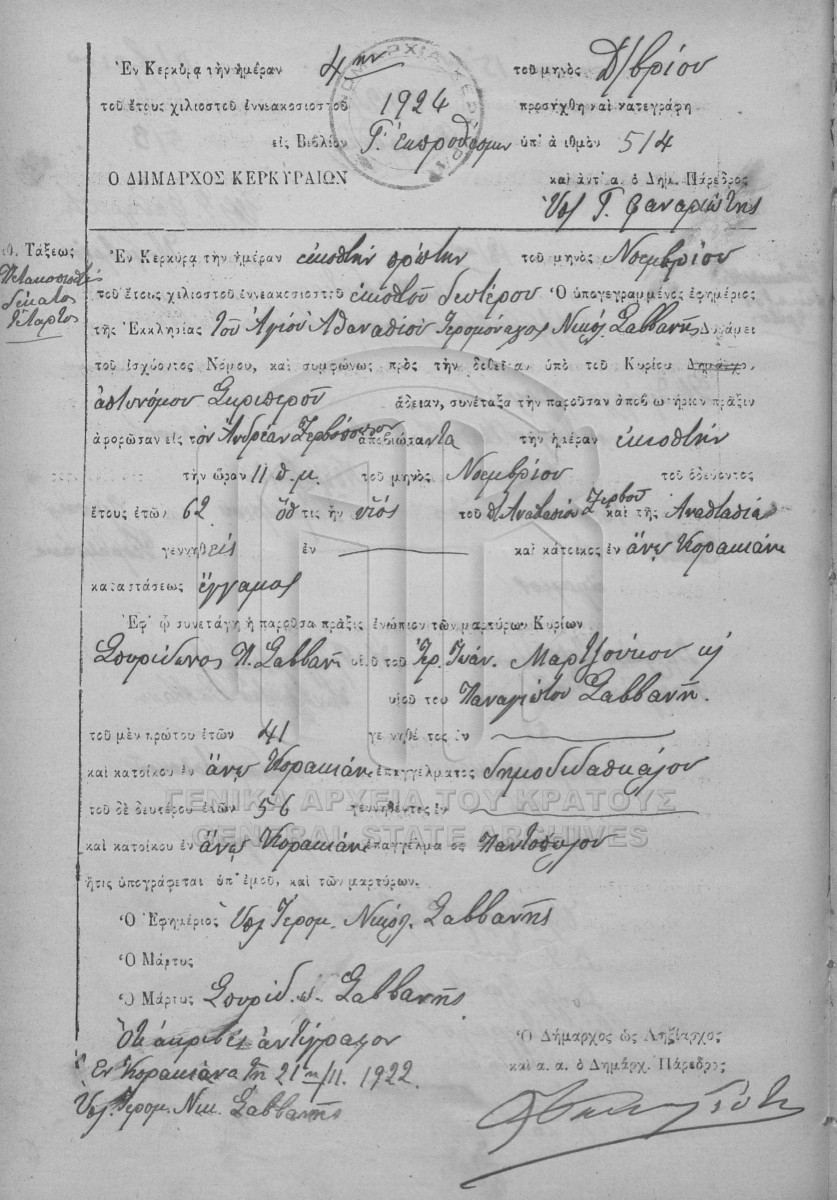 Ἐν Κερκύρᾳ τὴν ἡμέραν 4ην τοῦ μηνὸς Δ/βρίου
τοῦ ἔτους χιλιοστοῦ ἐννεακοσιοστοῦ 1924 προσήχθη καὶ κατεγράφη
εἰς Βιβλίον Γ΄ ἐκπροθέσμων ὑπ' ἀ ιθμὸν 514
Ο ΔΗΜΑΡΧΟΣ ΚΕΡΚΥΡΑΙΩΝ καὶ ἀντ' α. ὁ Δημ. Πάρεδρος
Ὑπ Γ. Φαναριώτης
ιθ. Τάξεως
δέκατος
τέταρτος
Ἐν Κερκύρᾳ τὴν ἡμέραν εἰκοστὴν πρώτην τοῦ μηνὸς Νοεμβρίου
τοῦ ἔτους χιλιοστοῦ ἐννεακοσιοστοῦ εἰκοστοῦ δευτέρου Ὁ ὑπογεγραμμένος ἐφημέριος
τῆς Ἐκκλησίας τοῦ Ἁγίου Ἀθανασίου Ἱερομόναχος Νικόλ. Σαββανῆς Δυνάμει
τοῦ ἰσχύοντος Νόμου, καὶ συμφώνως πρὸς τὴν δοθεῖσαν ὑπὸ τοῦ Κυρίου Δημάρχου
ἀστυνόμου Σκριπεροῦ ἄδειαν, συνέταξα τὴν παροῦσαν ἀποβιωτήριον πρᾶξιν
ἀφορῶσαν εἰς τὸν Ἀνδρέαν Ζερβόπουλον ἀποβιώσαντα τὴν ἡμέραν εἰκοστὴν
τὴν ὥραν 11 π.μ. τοῦ μηνὸς Νοεμβρίου τοῦ ὁδεύοντος
ἔτους ἐτῶν 62 ὅστις ἦν υἱὸς τοῦ π Ἀναστασίου Ζερβοῦ καὶ τῆς Ἀναστασία
γεννηθείς ἐν καὶ κάτοικος ἐν ἄνω Κορακιάνα
καταστάσεως ἔγγαμος
Ἐφ' ᾧ συνετάγη ἡ παροῦσα πρᾶξις ἐνώπιον τῶν μαρτύρων Κυρίων
Σπυρίδωνος Π. Σαββανῆ υἱοῦ τοῦ Ἱερ. Ἰωάν. Μαρτζούκου κ
υἱοῦ του Παναγιώτου Σαββανῆ.
τοῦ μὲν πρώτου ἐτῶν 41 γεννηθέντος ἐν
καὶ κατοίκου ἐν ἄνω Κορακιάνα ἐπαγγέλματος δημοδιδασκάλου
τοῦ δὲ δευτέρου ἐτῶν 56 γεννηθέντος ἐν
καὶ κατοίκου ἐν ἄνω Κορακιάνα ἐπαγγέλμα ος Παντοπώλου
ἥτις ὑπογράφεται ὑπ' ἐμοῦ, καὶ τῶν μαρτύρων.
Ὁ Ἐφημέριος Ὑπ Ἱερομ. Νικόλ. Σαββανῆς
Ὁ Μάρτυς
Ὁ Μάρτυς Σπυρίδ. Σαββανῆς
Ὅτι ἀκριβὲς ἀντίγραφον
Ἐν Κορακιάνα τῇ 21 η/11. 1922.
Ὑπ. Ἱερομ. Νικ. Σαββανῆς
Ὁ Δήμαρχος ὡς Ληξίαρχος
καὶ α. α. ὁ Δημάρχ. Πάρεδρος
ΓΕΝΙΚΑ ΑΡΧΕΙΑ ΤΟΥ ΚΡΑΤΟΥΣ
GENERAL STATE ARCHIVES